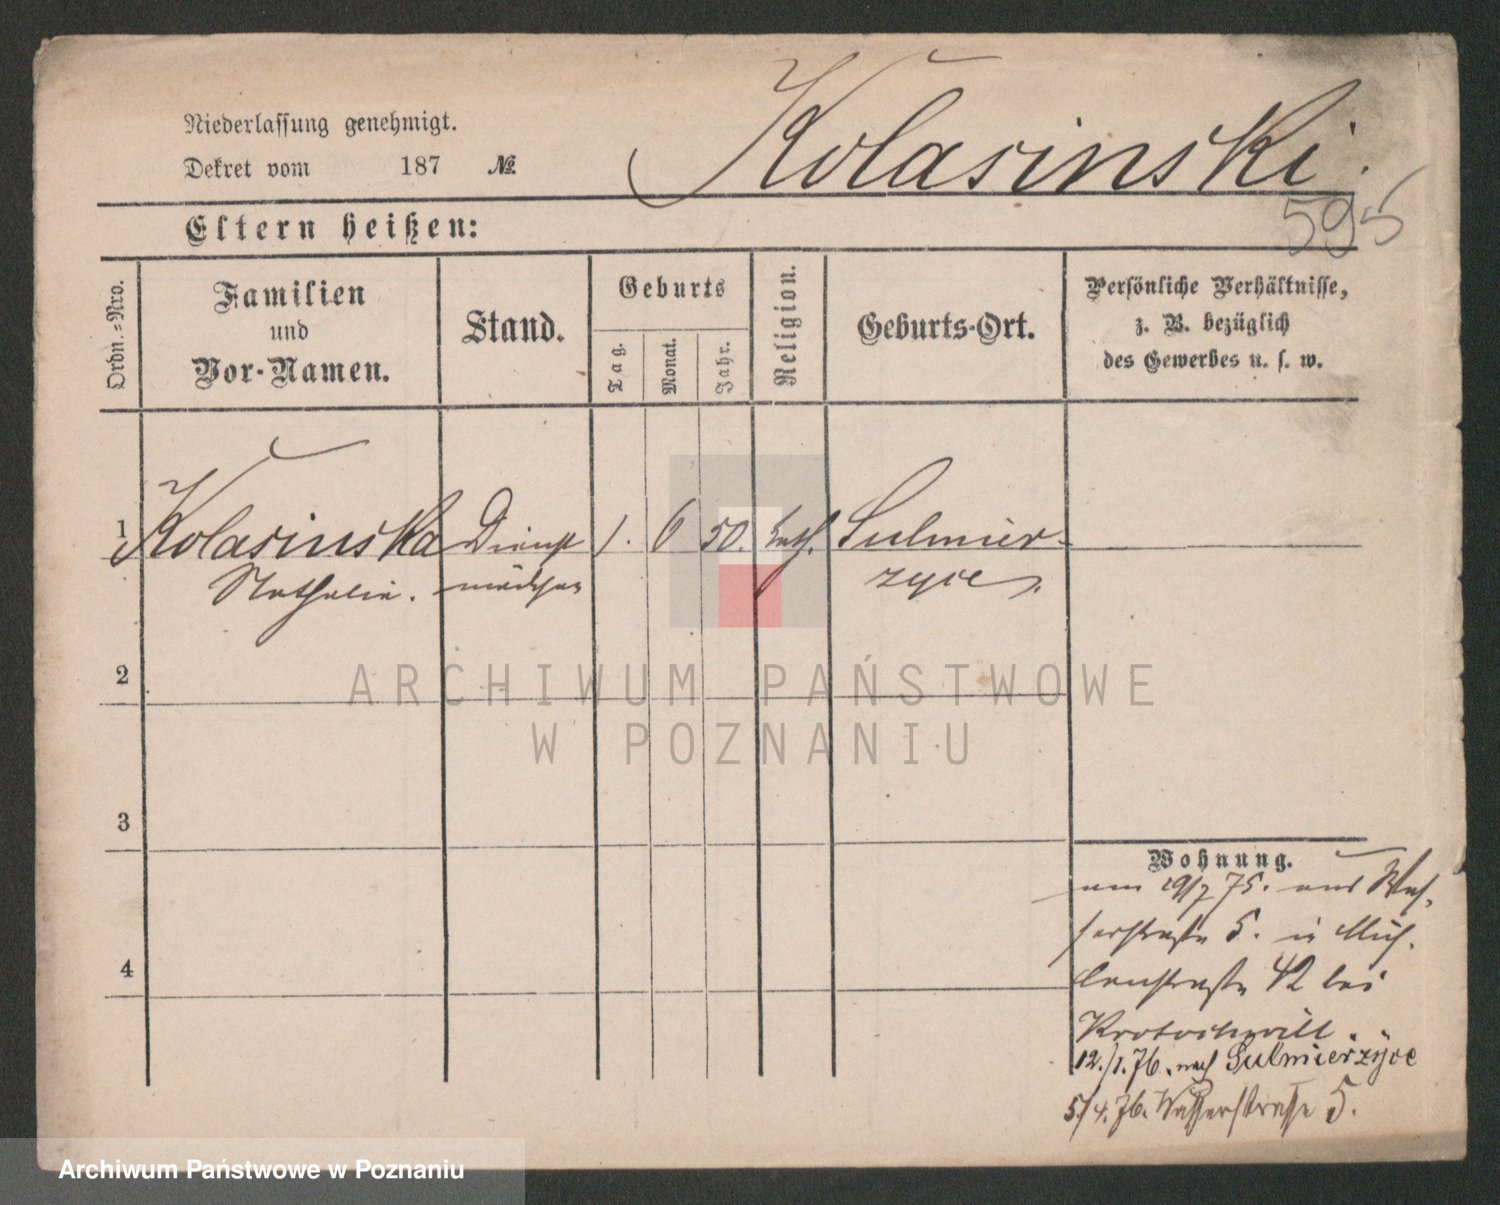 Niederlassung genehmigt.
Dekret vom 187 №
Kolasinski.
595
Eltern heißen:
Ordn.-Nro.
Familien
und
Vor-Namen.
Stand.
Geburts
Tag.
Monat.
Jahr.
Religion.
Geburts-Ort.
Persönliche Verhältnisse,
z. B. bezüglich
des Gewerbes u. s. w.
1 Kolasinska Dienst 1. 6 50. kath. Sulmier-
Nathalie. mädchen zyce.
2
3
4
Wohnung.
am 19/7 75. aus Was-
serstraße 5. in Müh-
lenstraße 42 bei
Krotochwill.
12./1.76. nach Sulmierzyce
5/4.76. Wasserstrasse 5.
ARCHIWUM PAŃSTWOWE
W POZNANIU
Archiwum Państwowe w Poznaniu